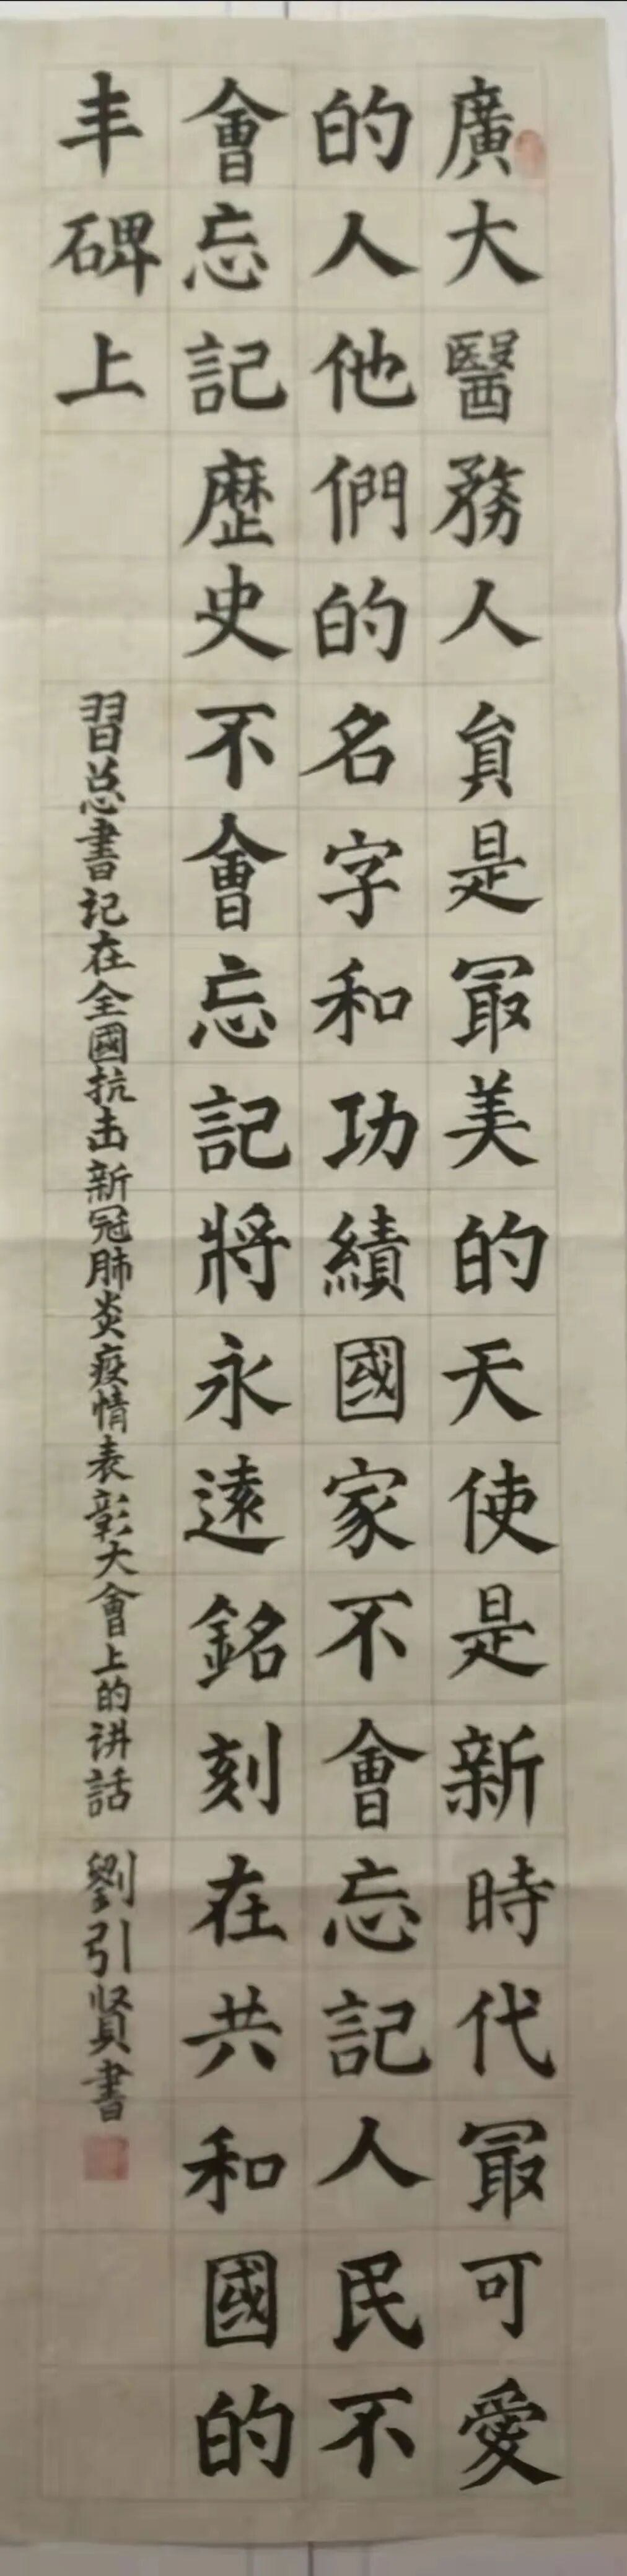 廣大醫務人貟是冣美的天使是新時代冣可愛
的人他們的名字和功績國家不會忘記人民不
會忘記歷史不會忘記將永遠銘刻在共和國的
丰碑上
習总書记在全國抗击新冠肺炎疫情表彰大會上的讲話
劉引賢書